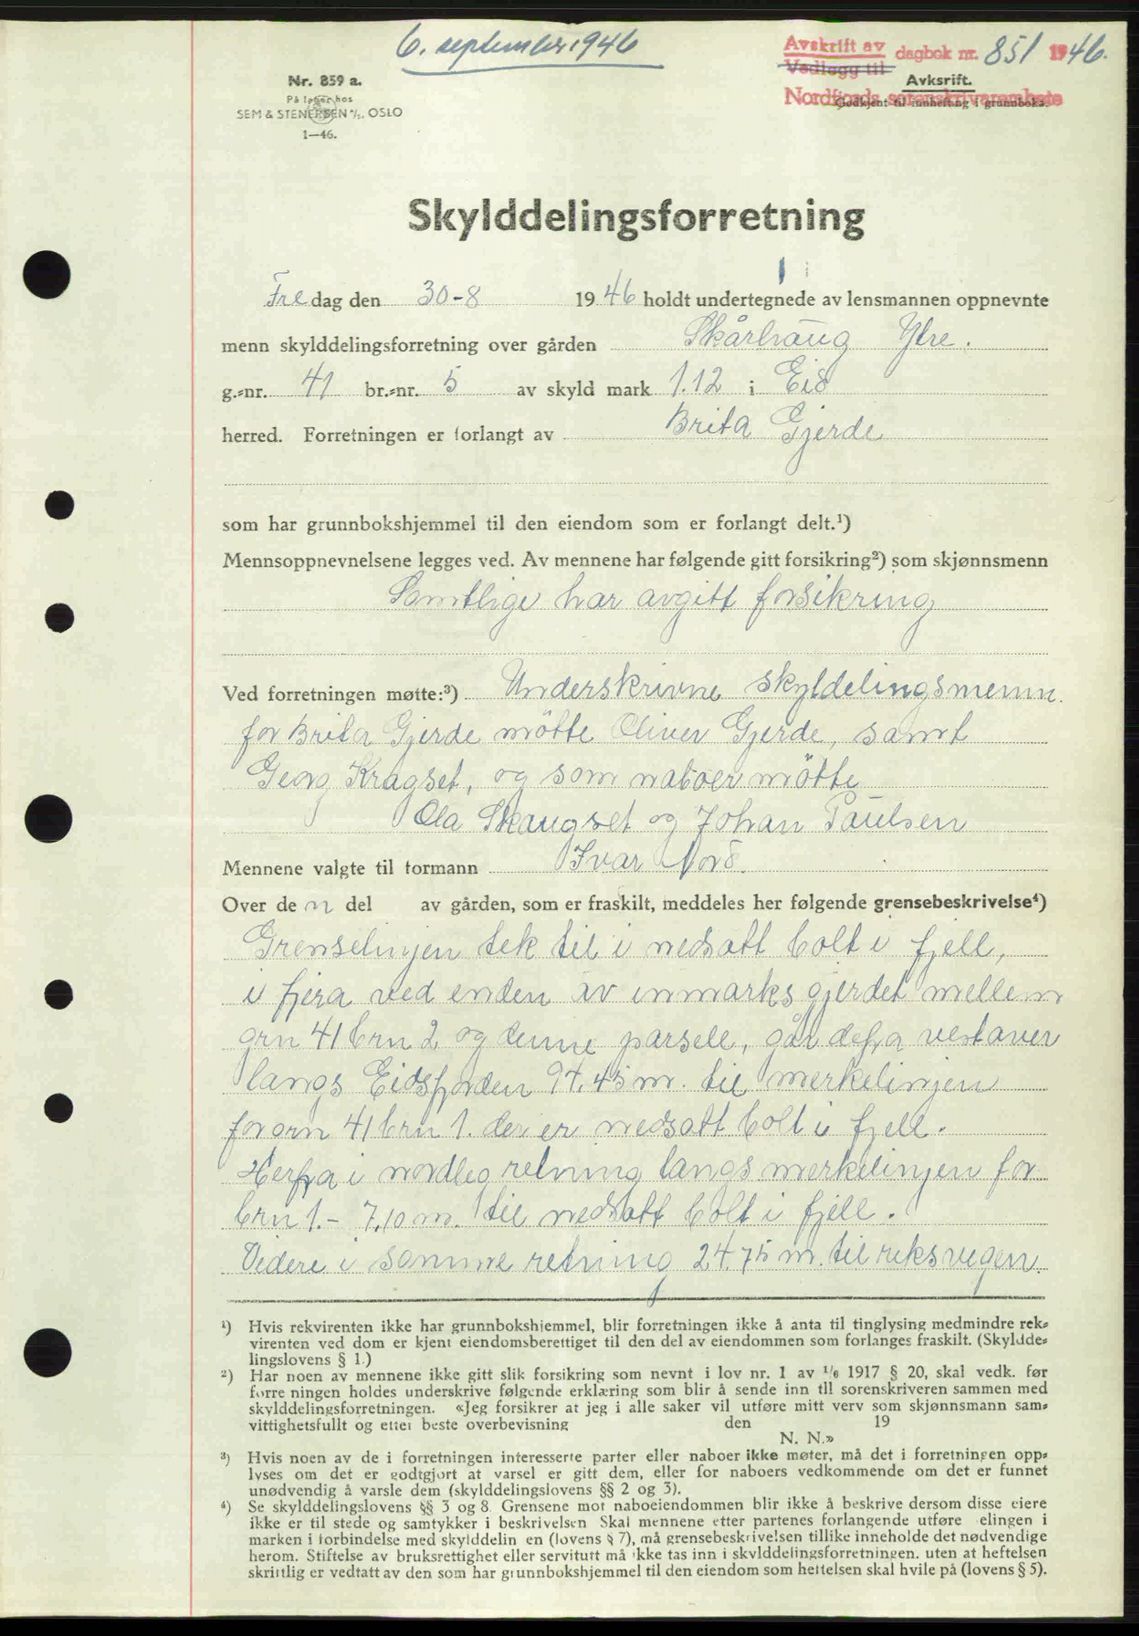 6. september 1946
Avskrift av
Vedlegg til
dagbok nr. 851 1946.
Nordfjords sorenskriverembete
Nr. 859 a.
På lager hos
SEM & STENERSEN A/S. OSLO
1—46.
Avksrift.
Godkjent til innhefting i grunnboka.
Skylddelingsforretning
Fredag den 30-8 1946 holdt undertegnede av lensmannen oppnevnte
menn skylddelingsforretning over gården Skårhaug Ytre.
g.-nr. 41 br.-nr. 5 av skyld mark 1.12 i Eid
herred. Forretningen er forlangt av Brita Gjerde
som har grunnbokshjemmel til den eiendom som er forlangt delt.¹)
Mennsoppnevnelsene legges ved. Av mennene har følgende gitt forsikring²) som skjønnsmenn
Samtlige har avgitt forsikring
Ved forretningen møtte:³) Underskrivne skyldelingsmenn.
for Brita Gjerde møtte Oliver Gjerde, samt
Georg Kragset, og som naboer møtte
Ola Skaugset og Johan Paulsen
Mennene valgte til formann Ivar Nord.
Over de n del av gården, som er fraskilt, meddeles her følgende grensebeskrivelse⁴)
Grenselinjen tek til i nedsatt bolt i fjell,
i fjera ved enden av inmarksgjerdet mellem
grn 41 brn 2 og denne parsele, går defra vestaver
langs Eidsfjorden 97.45 m. til merkelinjen
for grn 41 brn 1. der er nedsatt bolt i fjell.
Herfra i nordleg retning langs merkelinjen for
brn 1.- 7,10 m. til nedsatt bolt i fjell.
Videre i samme retning 24.75 m. til riksvegen.
¹) Hvis rekvirenten ikke har grunnbokshjemmel, blir forretningen ikke å anta til tinglysing medmindre rek-
virenten ved dom er kjent eiendomsberettiget til den del av eiendommen som forlanges fraskilt. (Skyldde-
lingslovens § 1.)
²) Har noen av mennene ikke gitt slik forsikring som nevnt i lov nr. 1 av ¹/6 1917 § 20, skal vedk. før
forre ningen holdes underskrive følgende erklæring som blir å sende inn til sorenskriveren sammen med
skylddelingsforretningen. «Jeg forsikrer at jeg i alle saker vil utføre mitt verv som skjønnsmann sam-
vittighetsfullt og etter beste overbevisning den 19
N. N.»
³) Hvis noen av de i forretningen interesserte parter eller naboer ikke møter, må det i forretningen opp-
lyses om det er godtgjort at varsel er gitt dem, eller for naboers vedkommende om det er funnet
unødvendig å varsle dem (skylddelingslovens §§ 2 og 3).
⁴) Se skylddelingslovens §§ 3 og 8. Grensene mot naboeiendommen blir ikke å beskrive dersom disse eiere
ikke er til stede og samtykker i beskrivelsen Skal mennene etter partenes forlangende utføre elingen i
marken i forbindelse med skylddelin en (lovens § 7), må grensebeskrivelsen tillike inneholde det nødvendige
herom. Stiftelse av bruksrettighet eller servitutt må ikke tas inn i skylddelingsforretningen. uten at heftelsen
skriftlig er vedtatt av den som har grunnbokshjemmel til den eiendom som heftelsen skal hvile på (lovens § 5).